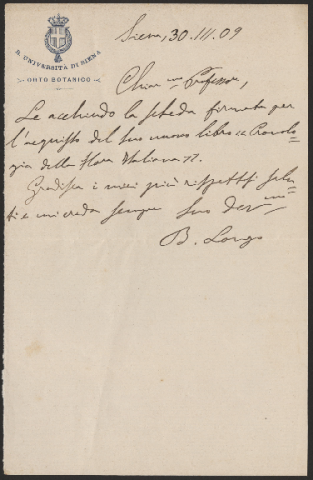 R. UNIVERSITÀ DI SIENA
ORTO BOTANICO
Siena, 30.III.09
Chiar.mo Professore,
Le accludo la scheda firmata per
l'acquisto del suo nuovo libro « Cronolo-
gia della Flora Italiana ».
Gradisca i miei più rispettosi salu-
ti e mi creda sempre Suo dev.mo
B. Longo